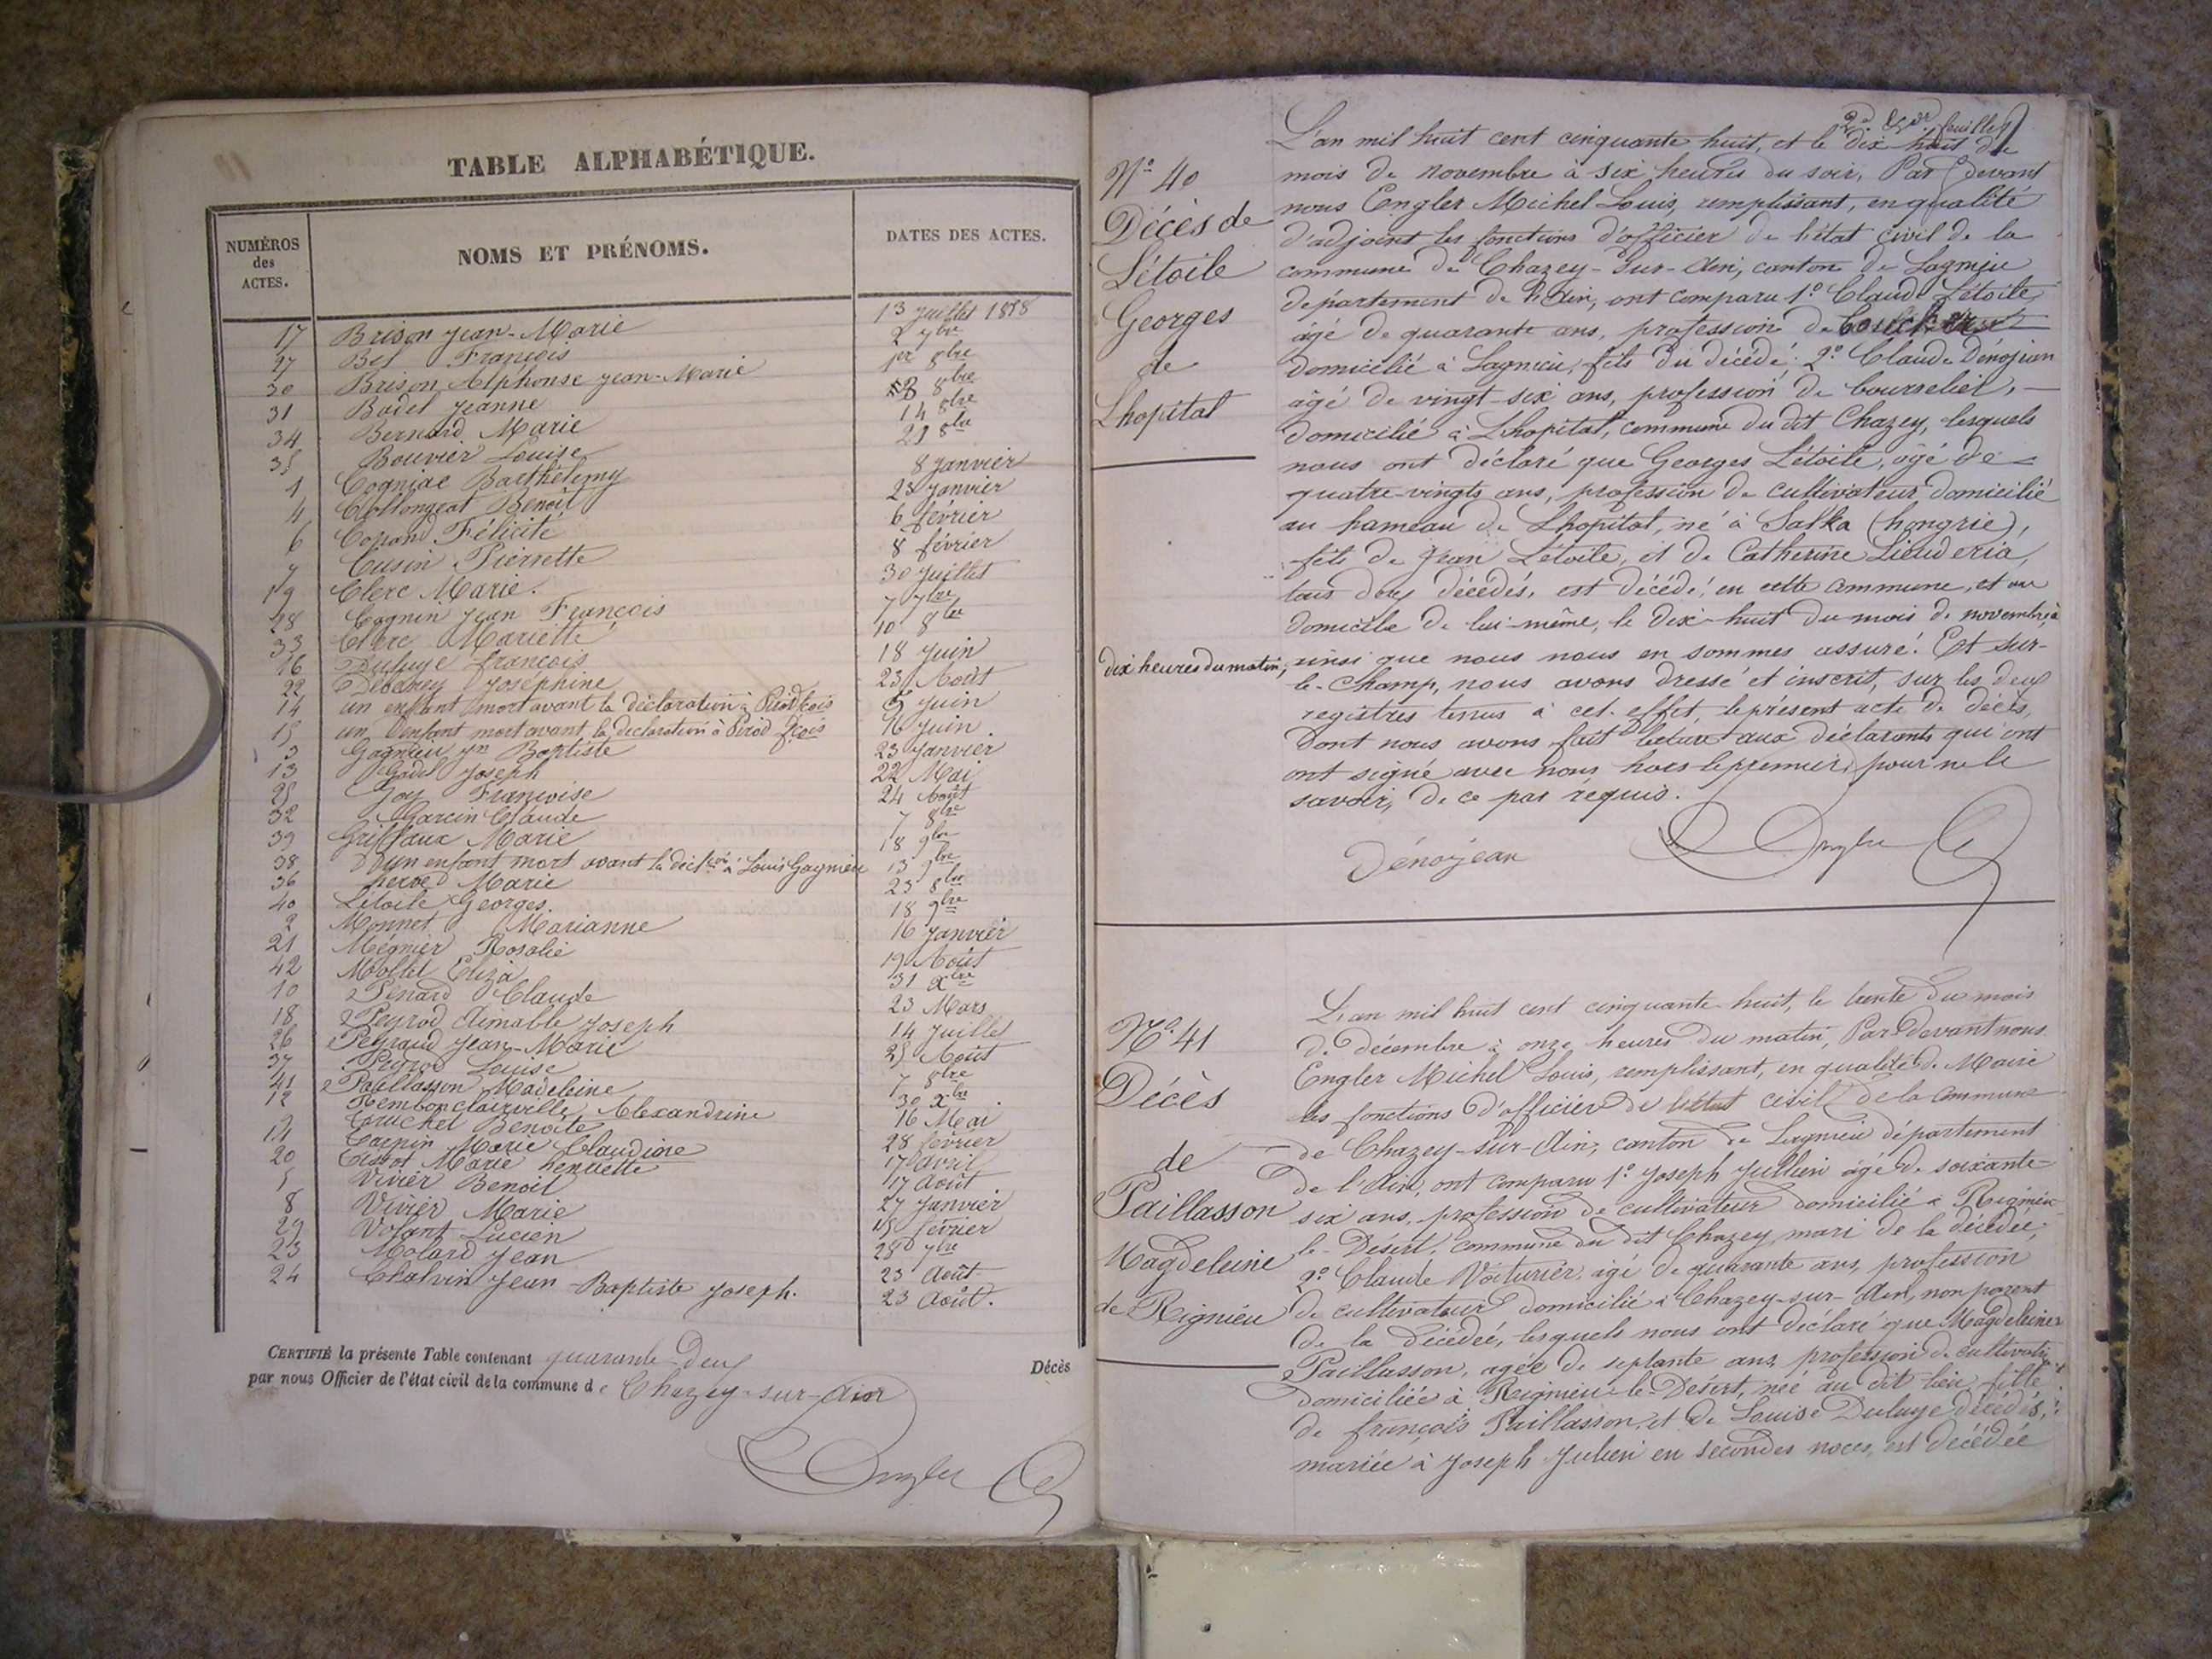 TABLE ALPHABÉTIQUE.
NUMÉROS des ACTES.
NOMS ET PRÉNOMS.
DATES DES ACTES.
17 Brison Jean-Marie 13 Juillet 1858
27 Bel François 2 7bre
30 Brison Alphonse Jean-Marie 1er 8bre
31 Badel Jeanne 8bre
34 Bernard Marie 14 8bre
35 Bouvier Louise 21 8bre
1 Cogniac Barthélemy 8 Janvier
4 Collongeat Benoît 23 Janvier
6 Conand Félicité 6 février
7 Cusin Pierrette 8 février
19 Clerc Marie. 30 Juillet
28 Cognin Jean François 7 7bre
33 Clerc Mariette 10 8bre
16 Duluye françois 18 Juin
22 Debavey Joséphine 23 Août
14 un enfant mort avant la déclaration à fçois 5 Juin
15 un Denfant mort avant la déclaration à fçois 16 Juin.
3 Gagnieu Jn Baptiste 23 Janvier
13 Gadel Joseph 22 Mai
25 Joy Françoise 24 Août
32 Garcin Claude 7 8bre
39 Griffaux Marie 18 9bre
38 D'un enfant mort avant la déclon à Louis Gagnieu 13 9bre
36 Marie 23 8bre
40 Létoile Georges. 18 9bre
2 Monnet Marianne 16 Janvier
21 Mégnier Rosalie 19 Août
42 Mollet Eliza 31 Xbre
10 Penard Claude 23 Mars
18 Peyrod Aimable Joseph 14 Juillet
26 Peyraud Jean-Marie 25 Août
37 Louise 7 8bre
41 Paillasson Madeleine 30 Xbre
12 Rembonclairville Alexandrine 16 Mai
Truchet Benoîte 28 février
11 Marie Claudine 17 avril
20 Tissot Marie henriette 17 Août
5 Vivier Benoît 27 Janvier
8 Vivier Marie 15 février
29 Volant Lucien 28 7bre
23 Molard Jean 23 Août
24 Chalvin Jean-Baptiste Joseph. 23 Août.
CERTIFIÉ la présente Table contenant quarante-deux Décès
par nous Officier de l'état civil de la commune de Chazey-sur-Ain
Engler
feuillet
N° 40
Décès de
Létoile
Georges
de
Lhopital
L'an mil huit cent cinquante huit, et le dix-huit du
mois de novembre à six heures du soir, Par devant
nous Engler Michel Louis, remplissant, en qualité
d'adjoint les fonctions d'officier de l'état civil de la
commune de Chazey-sur-Ain, canton de Lagnieu
département de l'Ain, ont comparu 1° Claude Létoile,
âgé de quarante ans, profession de
domicilié à Lagnieu, fils du décédé; 2° Claude Dénojean
âgé de vingt-six ans, profession de bourrelier,
domicilié à Lhopital, commune du dit Chazey, lesquels
nous ont déclaré que Georges Létoile, âgé de
quatre-vingts ans, profession de cultivateur domicilié
au hameau de Lhopital, né à Salka (hongrie),
fils de Jean Létoile, et de Catherine Lieuderia,
tous deux décédés, est décédé, en cette commune, et au
domicile de lui-même, le dix-huit du mois de novembre à
dix heures du matin, ainsi que nous nous en sommes assuré. Et sur-
le-champ, nous avons dressé et inscrit, sur les deux
registres tenus à cet effet, le présent acte de décès,
dont nous avons fait lecture aux déclarants qui ont
ont signé avec nous, hors le premier, pour ne le
savoir, de ce par réquis.
Dénojean
Engler
N° 41
Décès
de
Paillasson
Magdeleine
de Rignieu
L'an mil huit cent cinquante-huit, le trente du mois
de décembre à onze heures du matin, Par Devant nous
Engler Michel Louis, remplissant, en qualité de Maire
les fonctions d'officier de l'état civil de la commune
de Chazey-sur-Ain, canton de Lagnieu département
de l'Ain, ont comparu 1° Joseph Jullien âgé de soixante-
six ans, profession de cultivateur domicilié à Rignieu-
le-Désert, commune du dit Chazey, mari de la décédée;
2° Claude Voiturier, âgé de quarante ans, profession
de cultivateur domicilié à Chazey-sur-Ain, non parent
de la décédée, lesquels nous ont déclaré que Magdeleine
Paillasson, agée de septante ans, profession de
domiciliée à Rignieu-le-Désert, née au dit lieu, fille
de françois Paillasson, et de Louise Duluye décédés,
mariée à Joseph Julien en secondes noces, est décédée